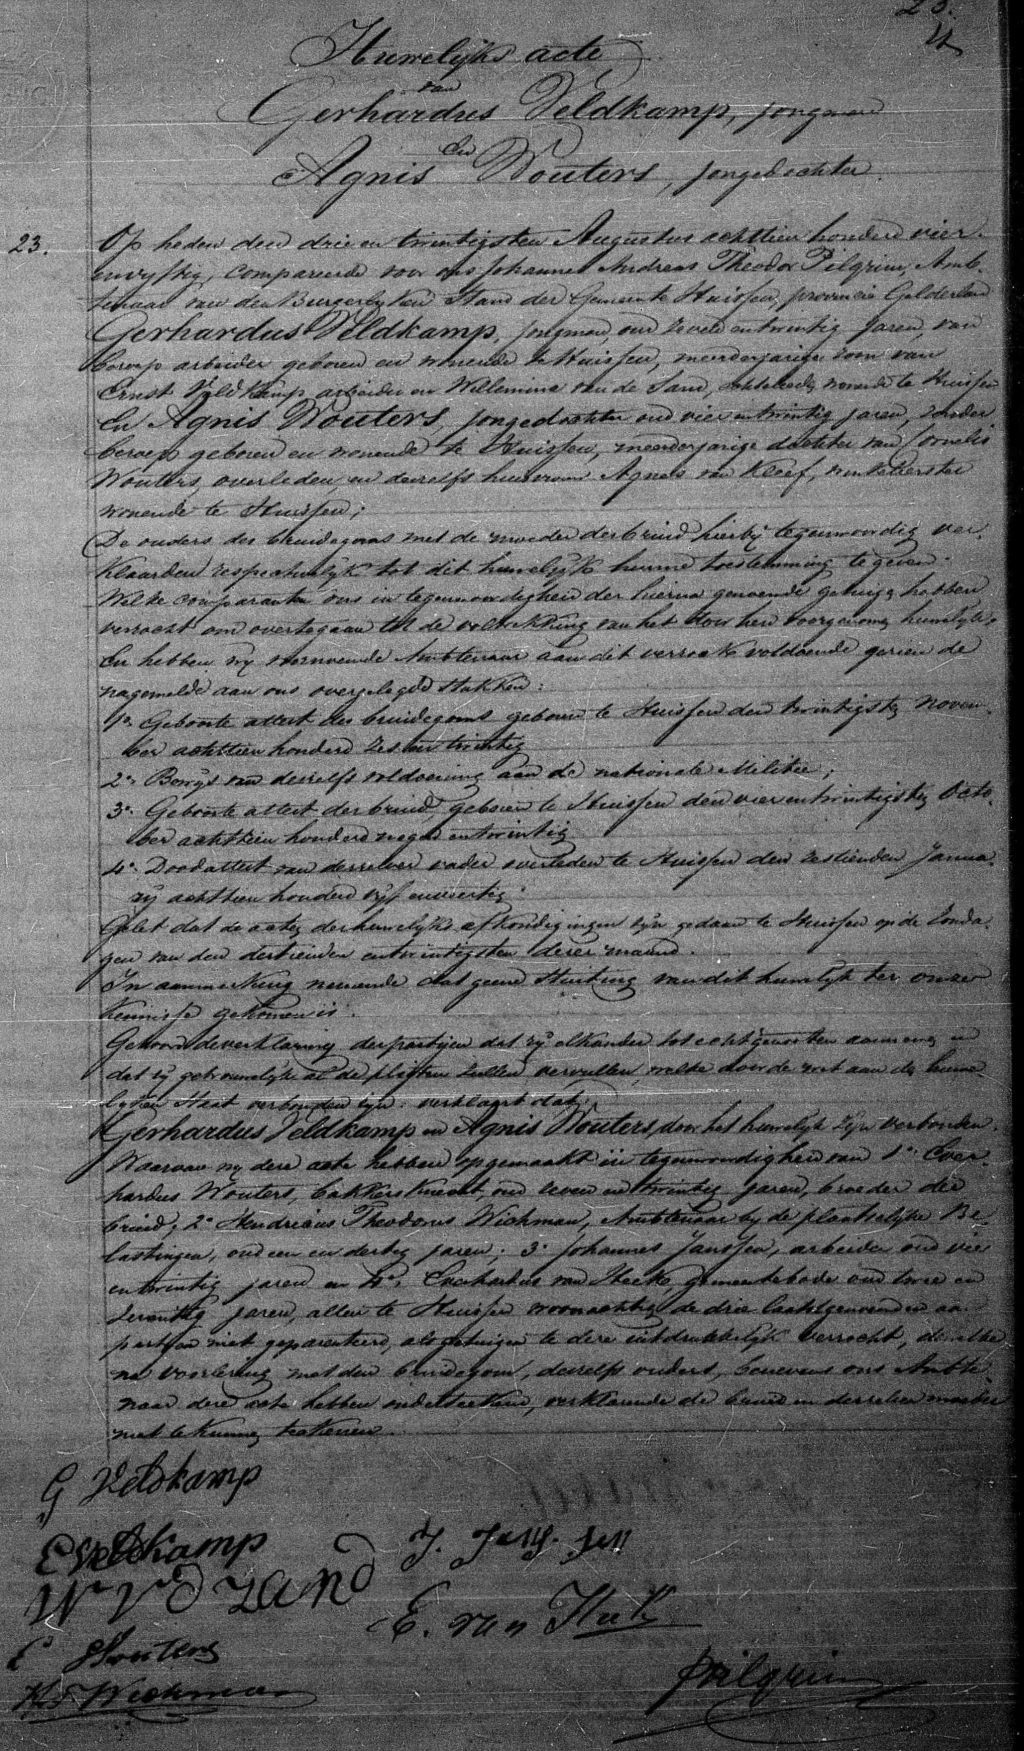 23.
Huwelijks acte
van
Gerhardus Veldkamp, jongman
En
Agnis Wouters, jongedochter.
23. Op heden den drie en twintigsten Augustus achttien honderd vier
envyftig, compareerde voor ons Johannes Andreas Theodor Pilgrim, Amb-
tenaar van den Burgerlyken Stand der Gemeente Huissen, provincie Gelderland
Gerhardus Veldkamp, jongman, oud zeven entwintig jaren, van
beroep arbeider geboren en wonende te Huissen, meerderjarige zoon van
Ernst Veldkamp arbeider en Willemina van de Sand, wonende te Huissen
En Agnis Wouters, jongedochter oud vier entwintig jaren, zonder
beroep geboren en wonende te Huissen, meerderjarige dochter van Cornelis
Wouters, overleden, en deszelfs huisvrouw Agnes van Kleef, winkelierster
wonende te Huissen;
De ouders des bruidegoms met de moeder der bruid hierbij tegenwoordig ver-
klaarden respectivelyk tot dit huwelyk hunne toestemming te geven.
Welke comparanten ons in tegenwoordigheid der hierna genoemde getuigen hebben
verzocht om overtegaan tot de voltrekking van het door hen voorgenomen huwelyk.
En hebben wy voornoemde Ambtenaar aan dit verzoek voldoende gezien de
nagemelde aan ons overgelegde stukken:
1o. Geboorte attest des bruidegoms geboren te Huissen den twintigsten Novem-
ber achttien honderd zes en twintig
2o. Bewys van deszelfs voldoening aan de nationale Militie;
3o. Geboorte attest der bruid, geboren te Huissen den vier entwintigsten Octo-
ber achttien honderd negen entwintig
4o. Doodattest van derzelver vader overleden te Huissen den zestienden Janua-
rij achttien honderd vijf enveertig.
Gelet dat de acten der huwelyks afkondigingen zyn gedaan te Huissen op de Zonda-
gen van den dertienden entwintigsten dezer maand.
In aanmerking nemende dat geene stuiting van dit huwelyk ter onzer
kennisse gekomen is.
Gehoord de verklaring der partijen dat zij elkander tot echtgenooten aannemen en
dat zij getrouwelyk al de pligten zullen vervullen welke door de wet aan de huwe-
lyken staat verbonden zyn: verklaart dat:
Gerhardus Veldkamp en Agnis Wouters, door het huwelyk zyn verbonden.
Waarvan wy deze acte hebben opgemaakt in tegenwoordigheid van 1o. Ever-
hardus Wouters, bakkersknecht, oud zeven entwintig jaren, broeder der
bruid. 2o Hendricus Theodorus Wichman, Ambtenaar by de plaatselyke Be-
lastingen, oud een en dertig jaren; 3o Johannes Janssen, arbeider oud vier
entwintig jaren en 4o. van Huet, gemeentebode oud twee en
zeventig jaren, allen te Huissen woonachtig de drie laatstgenoemden aan
partyen niet geparenteerd, als getuigen te deze uitdrukkelyk verzocht, dewelke
na voorlezing met den bruidegom, deszelfs ouders, benevens ons Ambte-
naar deze acte hebben onderteekend, verklarende de bruid en derzelver moeder
niet te kunnen teekenen.
G Veldkamp
E Veldkamp
W V D Zand
J. Jans sen
E. van Huet
E Wouters
H T Wichman
Pilgrim